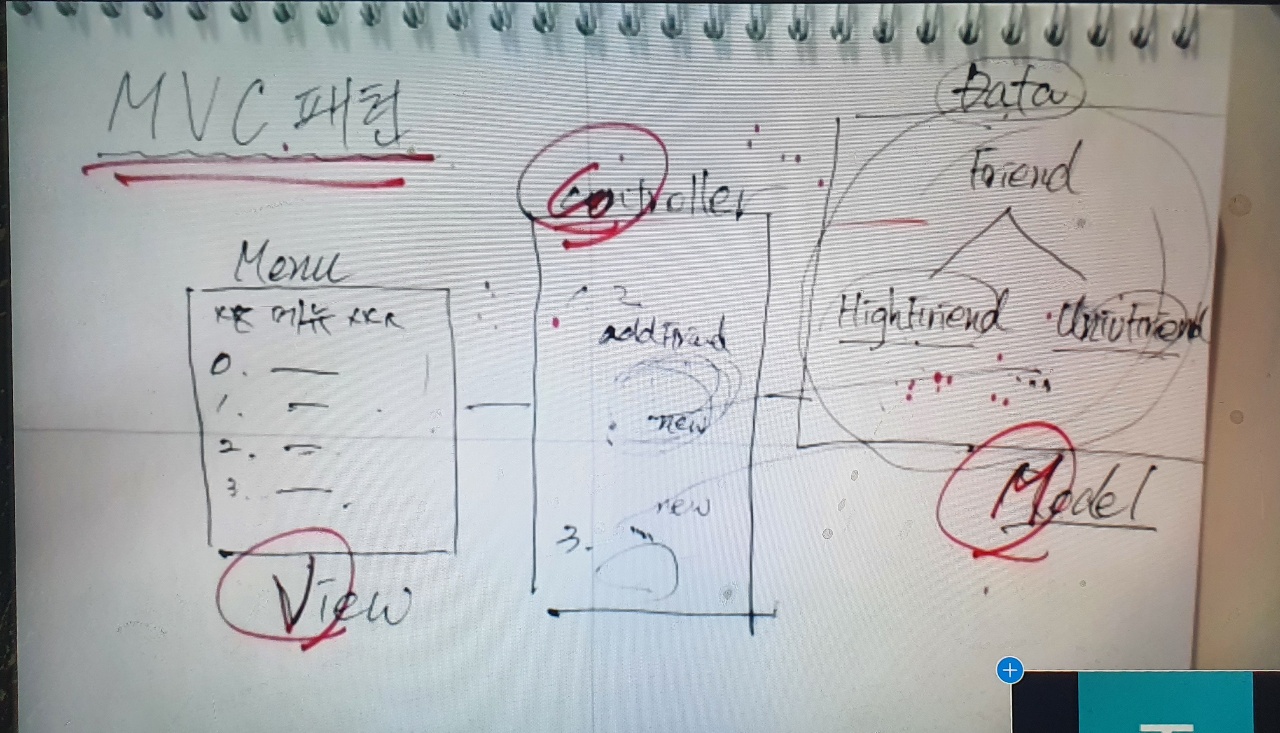 MVC 패턴
Menu
메뉴
0.
1.
2.
3.
View
Controller
2
addFriend
new
new
3.
Data
Friend
HighFriend
UnivFriend
Model